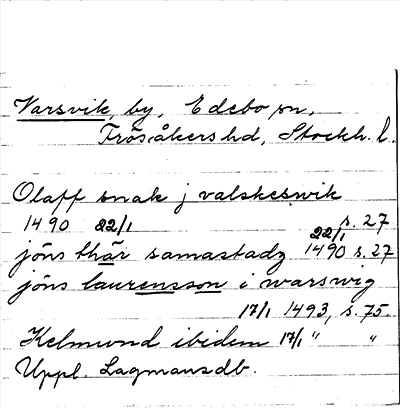 Varsvik, by, Edebo sn,
Frösåkers hd, Stockh. l.
Olaff snak j valskeswik
1490 22/1 s. 27
jöns thär samastadz 22/1 1490 s. 27
jöns laurensson i warswig
17/1 1493, s. 75.
Kelmund ibidem 17/1 " "
Uppl. Lagmansdb.